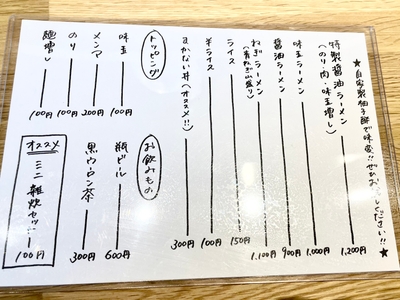 ★自家製柚子酢で味変!!ぜひお試しください!!★
特製醤油ラーメン 1,200円
(のり・肉・味玉増し)
味玉ラーメン 1,000円
醤油ラーメン 900円
ねぎラーメン 1,100円
(青ねぎ小盛り)
ライス 150円
半ライス 100円
まかない丼(オススメ!!) 300円
トッピング
味玉 100円
メンマ 200円
のり 100円
麺増し 100円
お飲みもの
瓶ビール 600円
黒ウーロン茶 300円
オススメ
ミニ雑炊セット 100円